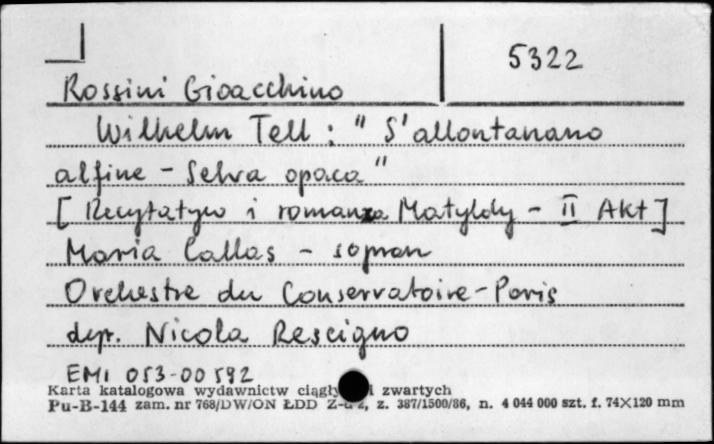 5322
Rossini Gioacchino
Wilhelm Tell : " S'allontanano
alfine - Selva opaca "
[ Recytatyw i romanza Matyldy - II Akt ]
Maria Callas - sopran
Orchestre du Conservatoire - Paris
dyr. Nicola Rescigno
EMI 053-00 592
Karta katalogowa wydawnictw i zwartych
Pu-B-144 zam. nr 768/DW/ON ŁDD z. 387/1500/86, n. 4 044 000 szt. f. 74×120 mm